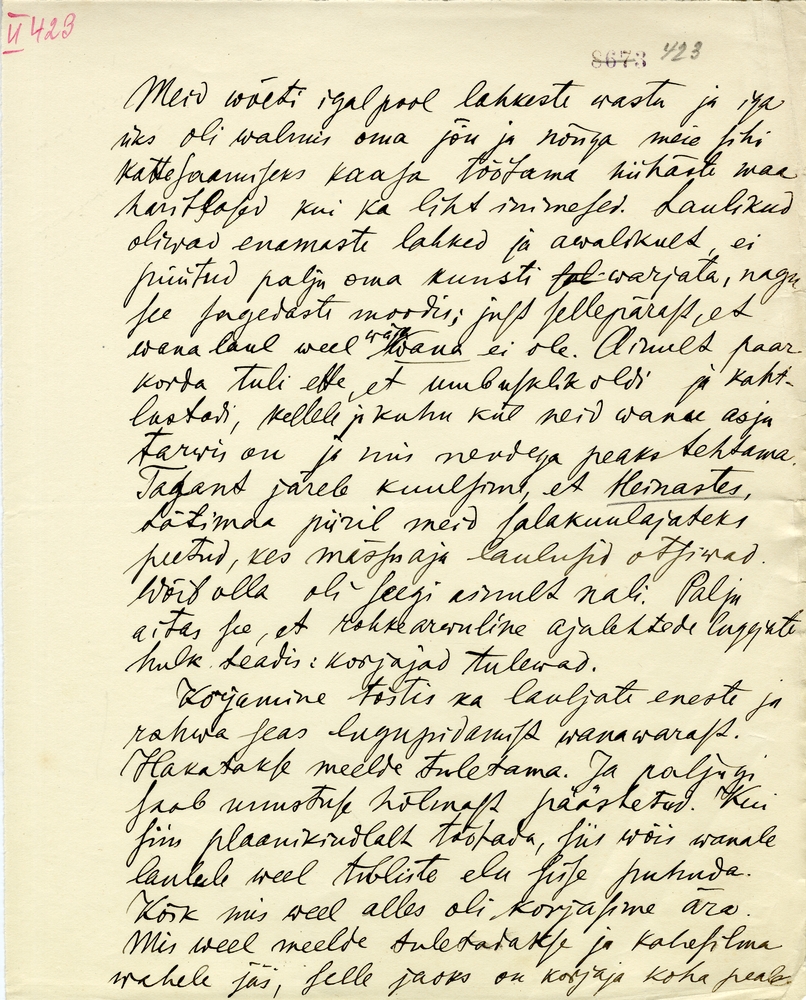 II 423
8673 423
Meid wõeti igalpool lahkeste wastu ja iga
üks oli walmis oma jõu ja nõuga meie sihi
kättesaamiseks kaasa töötama niihäste maa
haritlased kui ka liht inimesed. Laulikud
oliwad enamaste lahked ja awalikult, ei
püütud palju oma kunsti sal warjata, nagu
see sagedaste moodis; just sellepärast, et
wana laul weel wäga wana ei ole. Ainult paar
korda tuli ette, et umbusklik oldi ja kaht-
lustadi, kellele ja kuhu küll neid wanu asju
tarwis on ja mis nendega peaks tehtama.
Tagant järele kuulsime, et Heinastes,
Lätimaa piiril meid salakuulajateks
peetud, kes mässuaja laulusid otsiwad.
Wõib olla oli seegi ainult nali. Palju
aitas see, et rohkearwuline ajalehtede lugejate
hulk teadis: korjajad tulewad.
Korjamine tõstis ka lauljate eneste ja
rahwa seas lugupidamist wanawarast.
Hakatakse meelde tuletama. Ja paljugi
saab unustuse hõlmast päästetud. Kui
siin plaanikindlalt töötada, siis wõis wanale
laulule weel tubliste elu sisse puhuda.
Kõik mis weel alles oli korjasime ära.
Mis weel meelde tuletadakse ja kahesilma
wahele jäi, selle jaoks on korjaja koha peal.